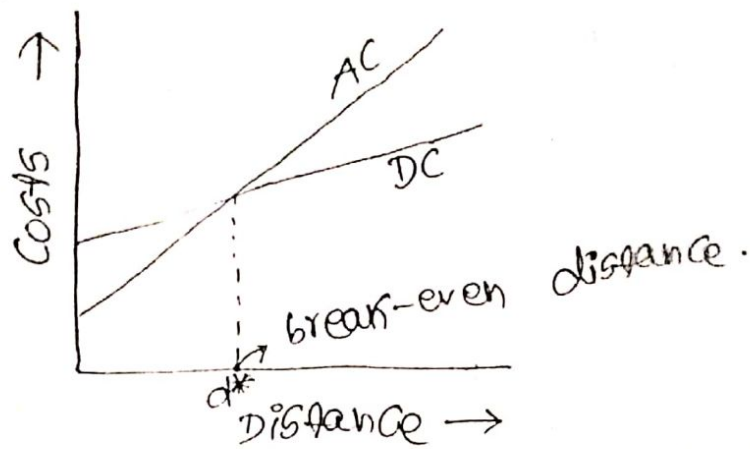 Costs →
AC
DC
break-even distance.
d*
Distance →